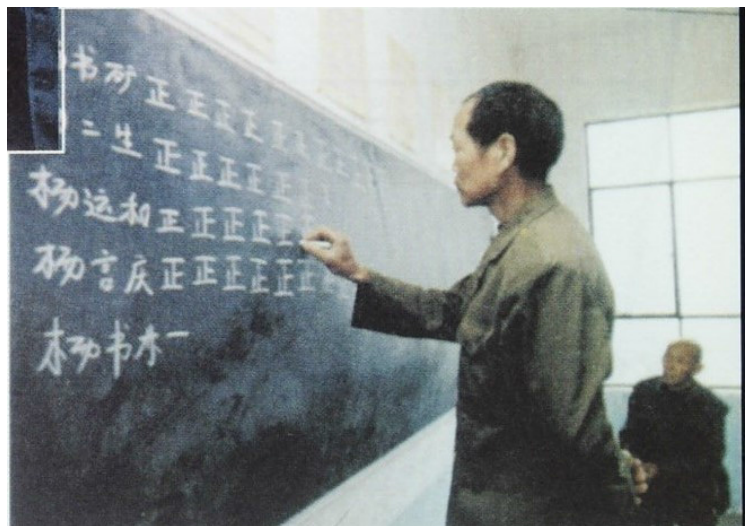 书矿 正正正正正正正正
二生 正正正正正正
杨远和 正正正正正
杨言庆 正正正正正正
杨书木 一